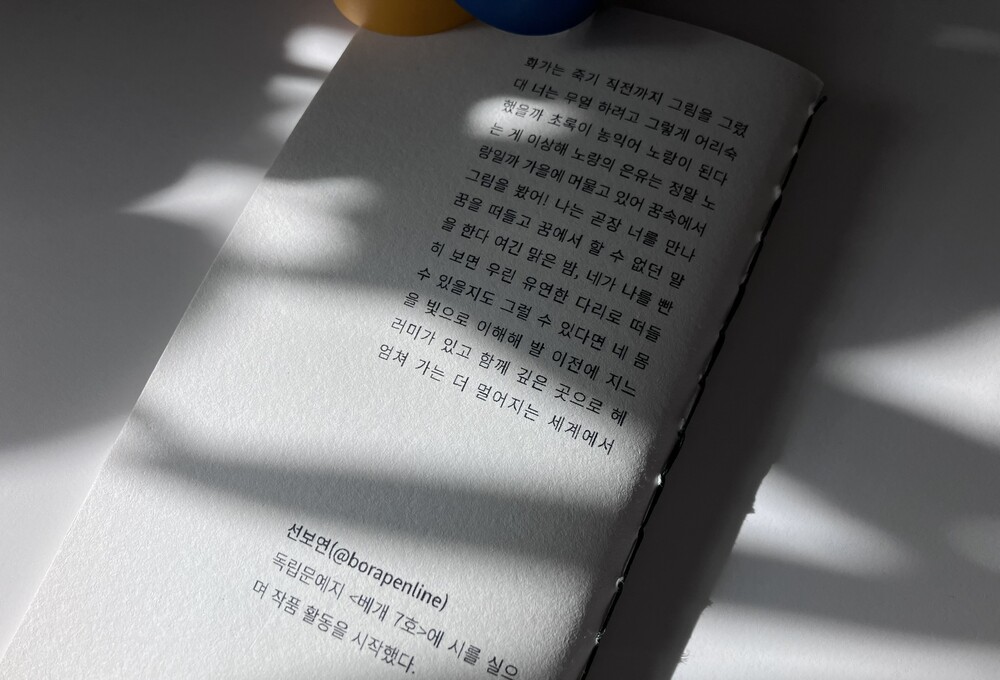 화가는 죽기 직전까지 그림을 그렸
대 너는 무얼 하려고 그렇게 어리숙
했을까 초록이 농익어 노랑이 된다
는 게 이상해 노랑의 은유는 정말 노
랑일까 가을에 머물고 있어 꿈속에서
그림을 봤어! 나는 곧장 너를 만나
꿈을 떠들고 꿈에서 할 수 없던 말
을 한다 여긴 맑은 밤, 네가 나를 빤
히 보면 우린 유연한 다리로 떠들
수 있을지도 그럴 수 있다면 네 몸
을 빛으로 이해해 발 이전에 지느
러미가 있고 함께 깊은 곳으로 헤
엄쳐 가는 더 멀어지는 세계에서
선보연(@borapenline)
독립문예지 <베개 7호>에 시를 실으
며 작품 활동을 시작했다.